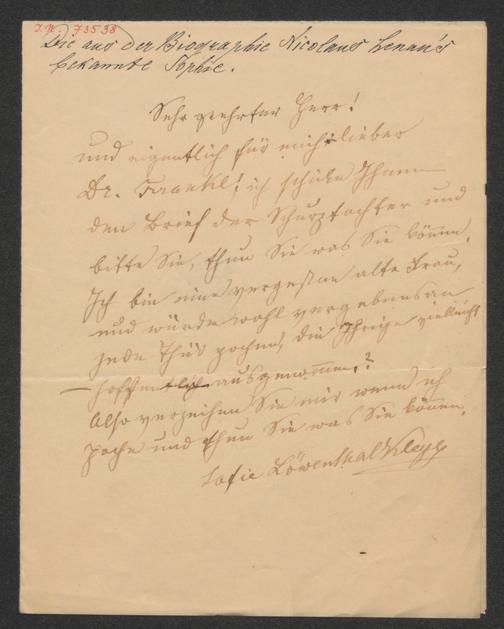 I.N. 73558
Die aus der Biographie Nicolaus Lenau's
bekannte Sophie.
Sehr geehrter Herr!
und eigentlich für mich lieber
Dr. Frankl! ich schicke Ihnen
den Brief der Schurztochter und
bitte Sie, thun Sie was Sie können.
Ich bin eine vergessne alte Frau,
und würde wohl vergebens an
jede Thür pochen, die Ihrige vielleicht
– hoffentlich ausgenommen?
Also verzeihen Sie mir wenn ich
poche und thun Sie was Sie können.
Sofie Löwenthal Kleyle